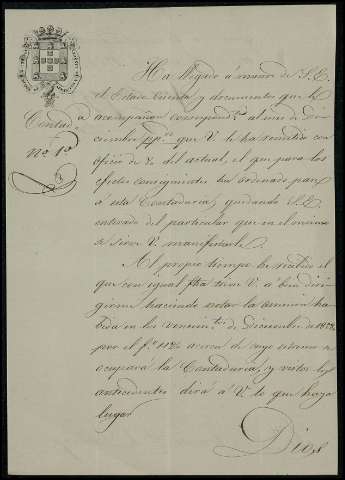 Ha llegado á manos de S.E.
el Estado cuenta y documentos que le
acompañan correspond.tes al mes de Di-
Contad.a
Nº 1º
ciembre pp.do que V. le ha remitido con
oficio de 2 del actual, el que para los
efectos consiguientes ha ordenado pase
á esta Contaduría, quedando S.E.
enterado del particular que en el mismo
se sirve V. manifestarle.
Al propio tiempo he recibido el
que con igual fha tuvo V. á bien diri-
girme haciendo notar la omisión ha-
bida en los vencim.tos de Diciembre de
por el acerca de cuyo estremo se
ocupará la Contaduría, y vistos los
antecedentes dirá á V. lo que haya
lugar
Dios